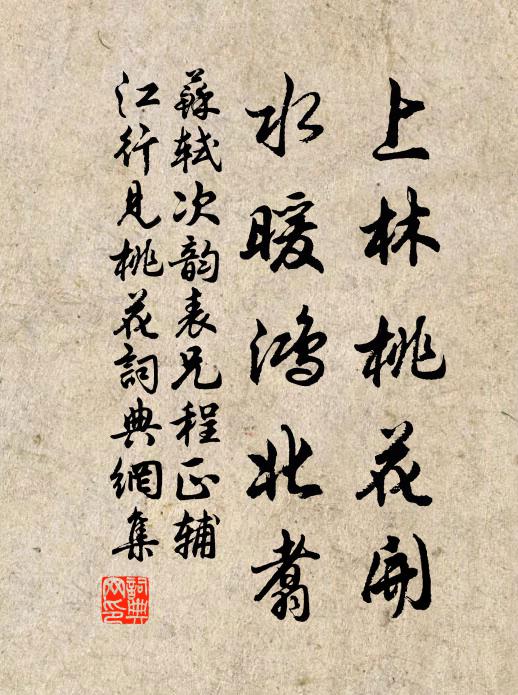 上林桃花開
水暖鴻北翥
蘇軾次韵表兄程正辅
江行見桃花詞典網集
詞典
网印